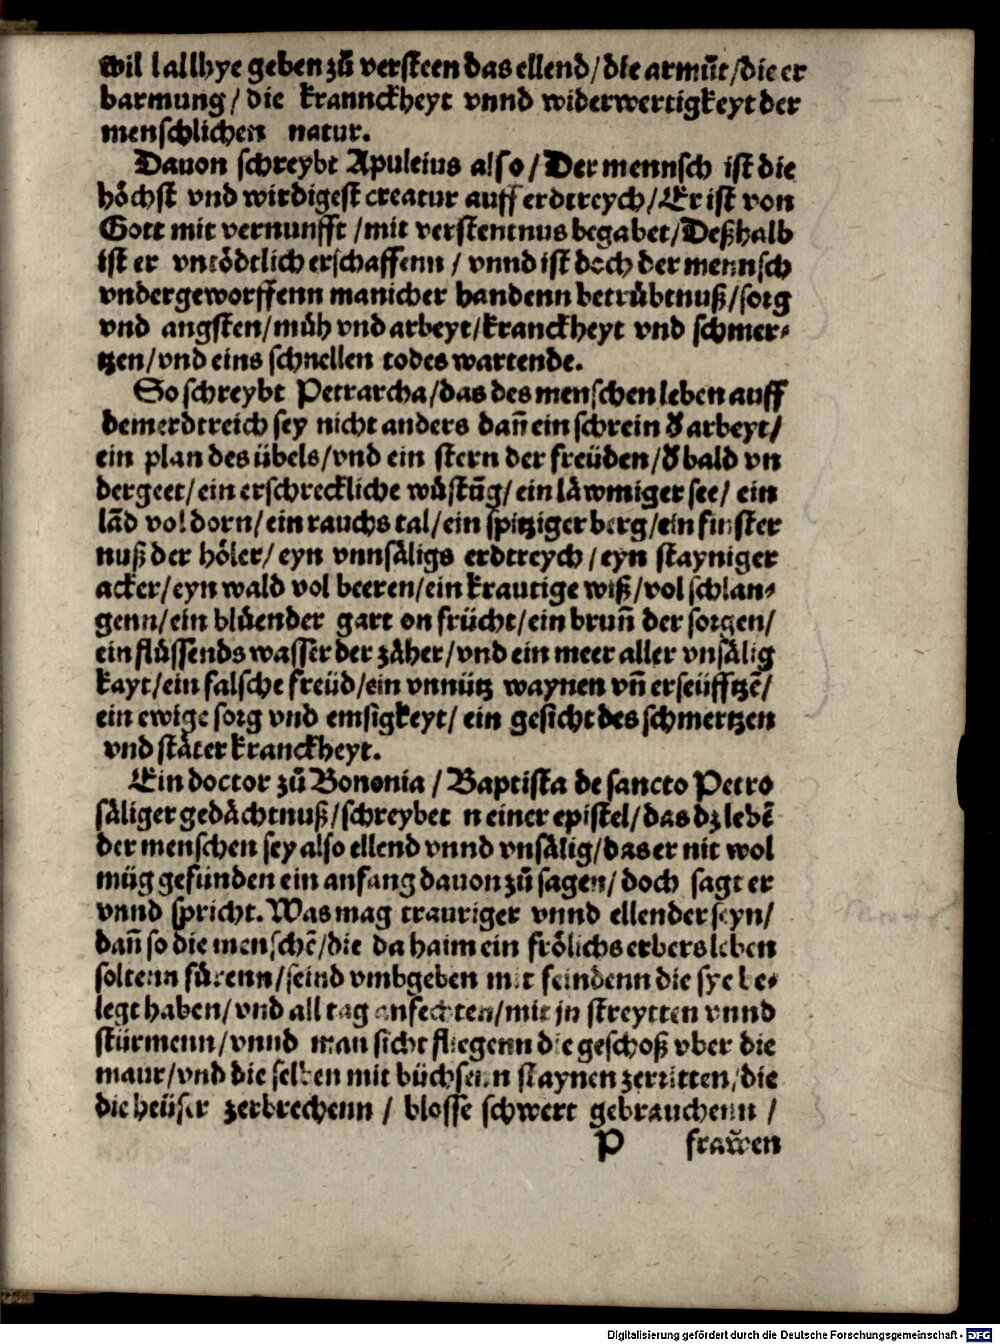 wil l allhye geben zů versteen das ellend/die armůt/die er
barmung/ die krannckheyt vnnd widerwertigkeyt der
menschlichen natur.
Dauon schreybt Apuleius also/Der mennsch ist die
höchst vnd wirdigest creatur auff erdtreych/Er ist von
Gott mit vernunfft/mit verstentnus begabet/Deßhalb
ist er vntödtlich erschaffenn/vnnd ist doch der mennsch
vndergeworffenn manicher handenn betrůbtnuß/sorg
vnd angsten/můh vnd arbeyt/kranckheyt vnd schmer⸗
tzen/vnd eins schnellen todes wartende.
So schreybt Petrarcha/das des menschen leben auff
dem erdtreich sey nicht anders dañ ein schrein ď arbeyt/
ein plan des übels/vnd ein stern der freüden/ď bald vn
dergeet/ein erschreckliche wůstũg/ein läwmiger see/ ein
lãd vol dorn/ein rauchs tal/ein spitziger berg/ein finster
nuß der höler/eyn vnnsäligs erdtreych/eyn stayniger
acker/eyn wald vol beeren/ein krautige wiß/vol schlan⸗
genn/ein blůender gart on frücht/ein bruñ der sorgen/
ein flůssends wasser der zäher/vnd ein meer aller vnsälig
kayt/ein falsche freüd/ein vnnütz waynen vñ erseüfftzẽ/
ein ewige sorg vnd emsigkeyt/ ein gesicht des schmertzen
vnd stäter kranckheyt.
Ein doctor zů Bononia / Baptista de sancto Petro
säliger gedächtnuß/schreybet n einer epistel/das dz lebẽ
der menschen sey also ellend vnnd vnsälig/das er nit wol
müg gefunden ein anfang dauon zů sagen/doch sagt er
vnnd spricht. Was mag trauriger vnnd ellender seyn/
dañ so die menschẽ/die da haim ein frölichs erbers leben
soltenn fůrenn/seind vmbgeben mit feindenn die sye be⸗
legt haben/vnd all tag anfechten/mit jn streytten vnnd
stürmenn/vnnd man sicht fliegenn die geschoß vber die
maur/vnd die selben mit büchsenn staynen zerritten/die
die heüser zerbrechenn / blosse schwert gebrauchenn /
P frawen
Digitalisierung gefördert durch die Deutsche Forschungsgemeinschaft - DFG